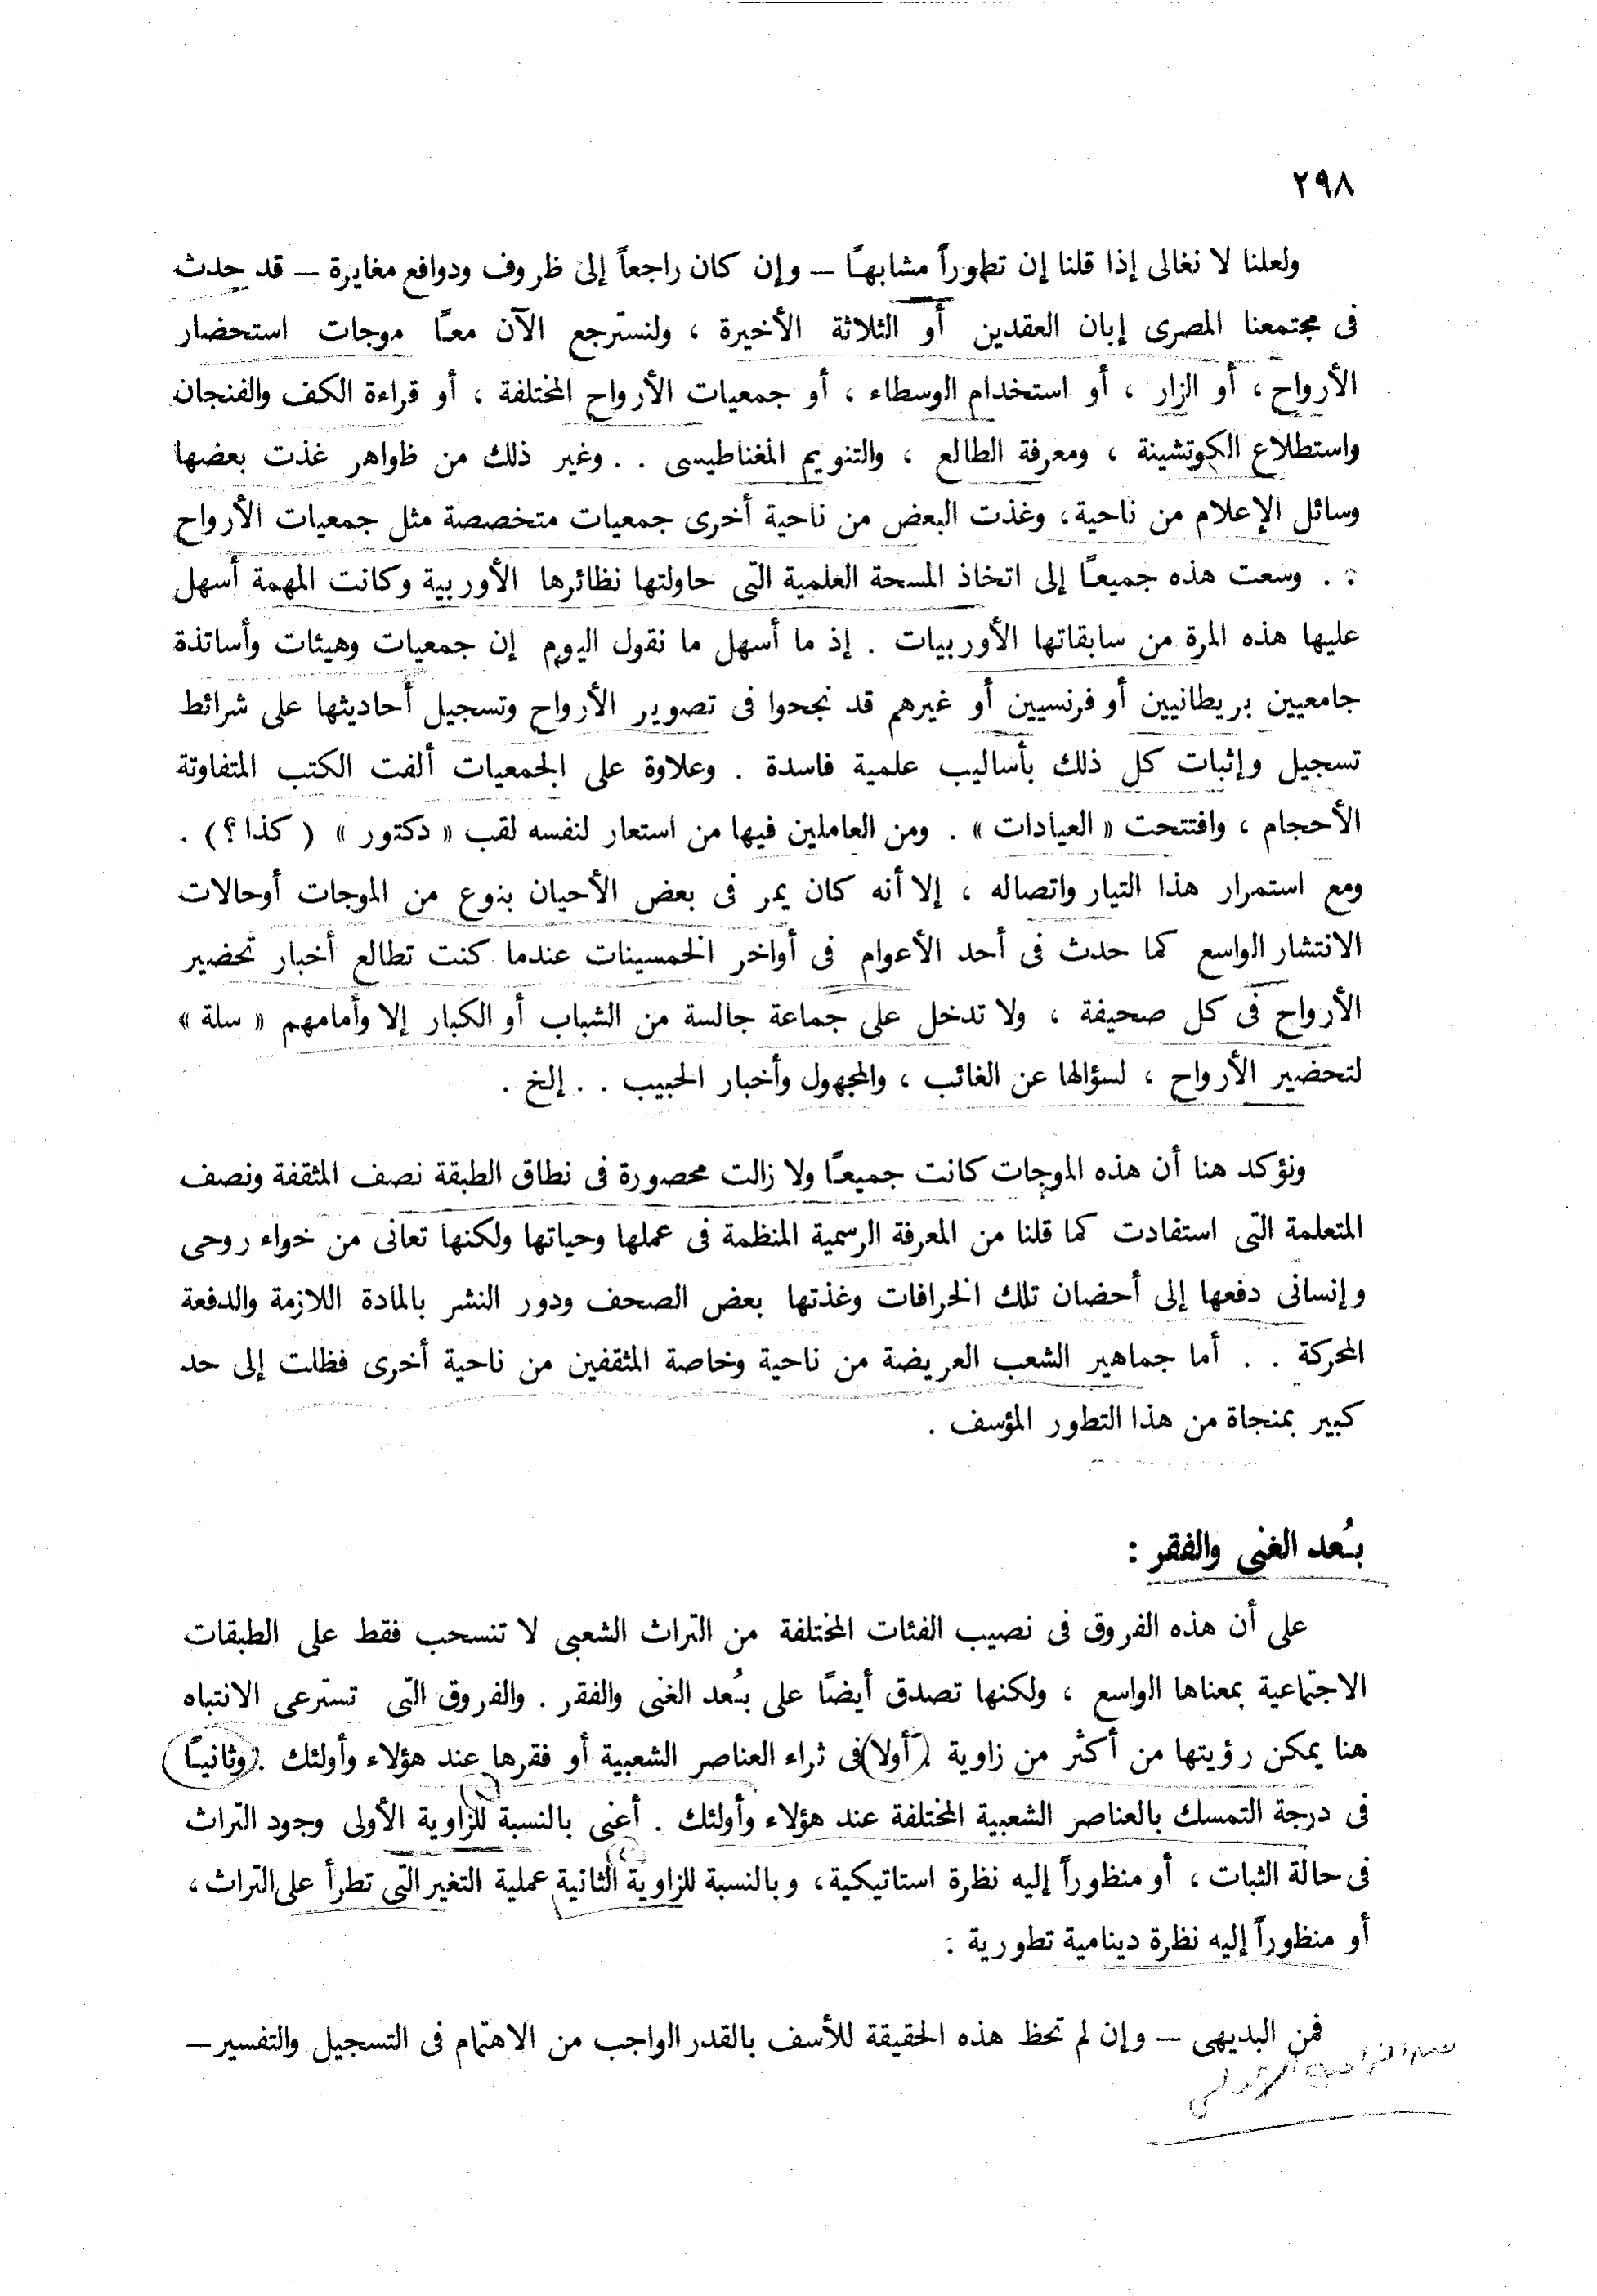 ٢٩٨
ولعلنا لا نغالى إذا قلنا إن تطوراً مشابهاً – وإن كان راجعاً إلى ظروف ودوافع مغايرة – قد حدث
فى مجتمعنا المصرى إبان العقدين أو الثلاثة الأخيرة ، ولنسترجع الآن معاً موجات استحضار
الأرواح ، أو الزار ، أو استخدام الوسطاء ، أو جمعيات الأرواح المختلفة ، أو قراءة الكف والفنجان
واستطلاع الكوتشينة ، ومعرفة الطالع ، والتنويم المغناطيسى . . وغير ذلك من ظواهر غذت بعضها
وسائل الإعلام من ناحية ، وغذت البعض من ناحية أخرى جمعيات متخصصة مثل جمعيات الأرواح
. . وسعت هذه جميعاً إلى اتخاذ المسحة العلمية التى حاولتها نظائرها الأوربية وكانت المهمة أسهل
عليها هذه المرة من سابقاتها الأوربيات . إذ ما أسهل ما نقول اليوم إن جمعيات وهيئات وأساتذة
جامعيين بريطانيين أو فرنسيين أو غيرهم قد نجحوا فى تصوير الأرواح وتسجيل أحاديثها على شرائط
تسجيل وإثبات كل ذلك بأساليب علمية فاسدة . وعلاوة على الجمعيات ألفت الكتب المتفاوتة
الأحجام ، وافتتحت « العيادات » . ومن العاملين فيها من استعار لنفسه لقب « دكتور » ( كذا ؟ ) .
ومع استمرار هذا التيار واتصاله ، إلا أنه كان يمر فى بعض الأحيان بنوع من الموجات أوحالات
الانتشار الواسع كما حدث فى أحد الأعوام فى أواخر الخمسينات عندما كنت تطالع أخبار تحضير
الأرواح فى كل صحيفة ، ولا تدخل على جماعة جالسة من الشباب أو الكبار إلا وأمامهم « سلة »
لتحضير الأرواح ، لسؤالها عن الغائب ، والمجهول وأخبار الحبيب . . إلخ .
ونؤكد هنا أن هذه الموجات كانت جميعاً ولا زالت محصورة فى نطاق الطبقة نصف المثقفة ونصف
المتعلمة التى استفادت كما قلنا من المعرفة الرسمية المنظمة فى عملها وحياتها ولكنها تعانى من خواء روحى
وإنسانى دفعها إلى أحضان تلك الخرافات وغذتها بعض الصحف ودور النشر بالمادة اللازمة والدفعة
المحركة . . أما جماهير الشعب العريضة من ناحية وخاصة المثقفين من ناحية أخرى فظلت إلى حد
كبير بمنجاة من هذا التطور المؤسف .
بُعد الغنى والفقر :
على أن هذه الفروق فى نصيب الفئات المختلفة من التراث الشعبى لا تنسحب فقط على الطبقات
الاجتماعية بمعناها الواسع ، ولكنها تصدق أيضاً على بُعد الغنى والفقر . والفروق التى تسترعى الانتباه
هنا يمكن رؤيتها من أكثر من زاوية . أولا فى ثراء العناصر الشعبية أو فقرها عند هؤلاء وأولئك . وثانياً
فى درجة التمسك بالعناصر الشعبية المختلفة عند هؤلاء وأولئك . أعنى بالنسبة للزاوية الأولى وجود التراث
فى حالة الثبات ، أو منظوراً إليه نظرة استاتيكية ، وبالنسبة للزاوية الثانية عملية التغير التى تطرأ على التراث ،
أو منظوراً إليه نظرة دينامية تطورية :
فمن البديهى – وإن لم تحظ هذه الحقيقة للأسف بالقدر الواجب من الاهتمام فى التسجيل والتفسير –